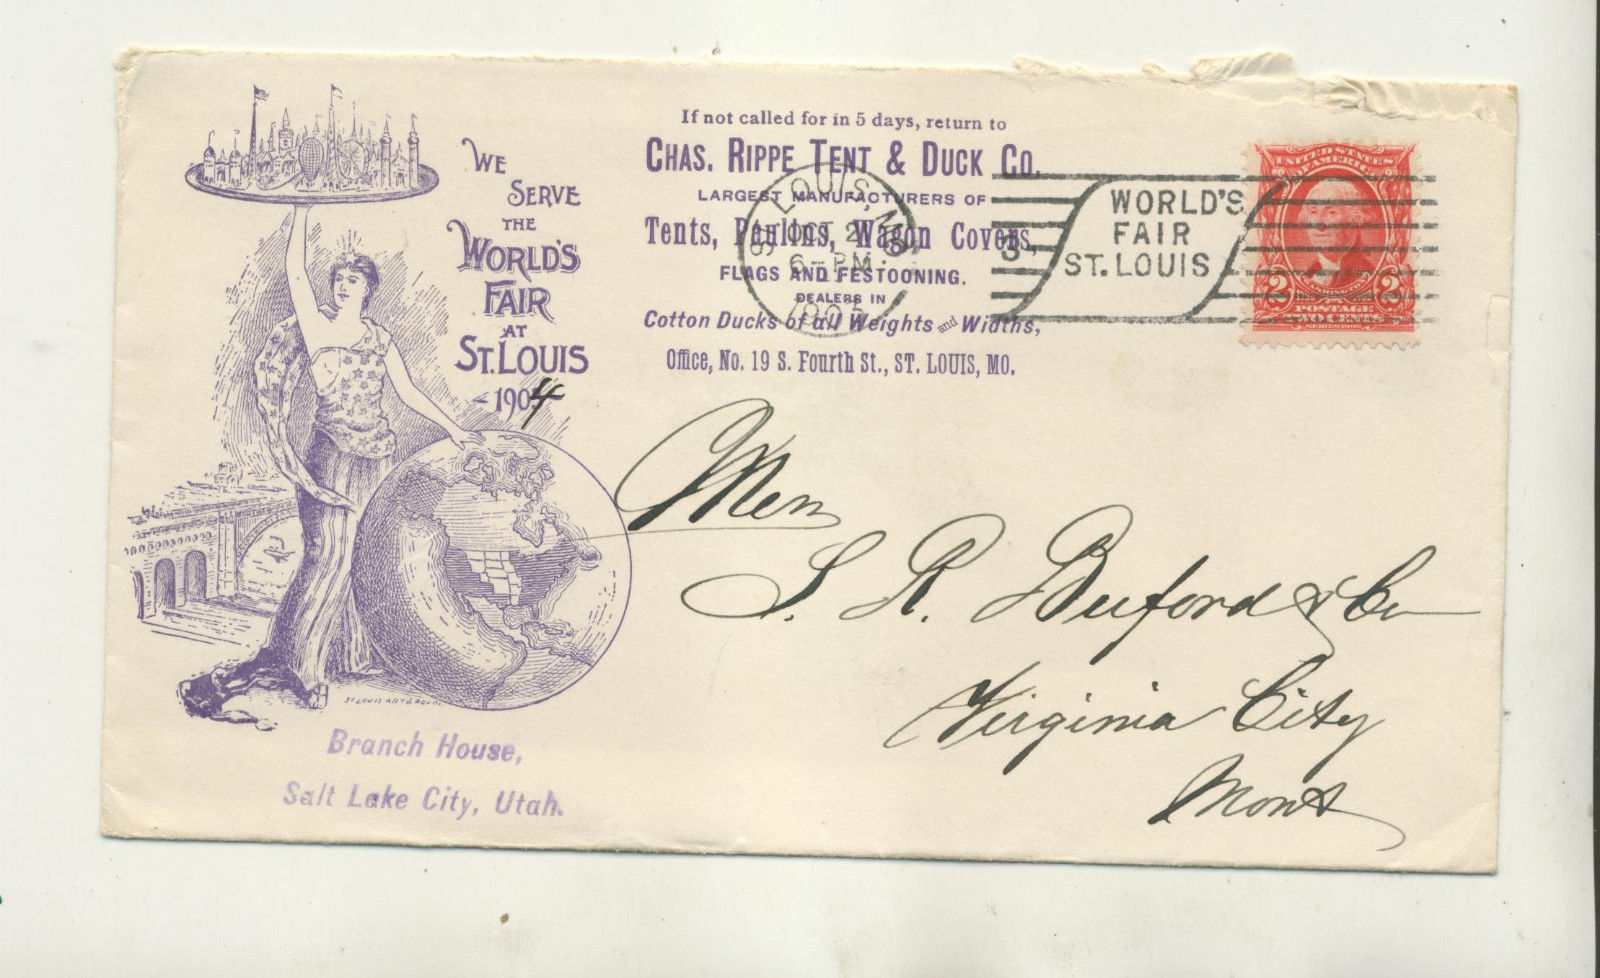 WE
SERVE
THE
WORLD'S
FAIR
AT
ST. LOUIS
- 1904
If not called for in 5 days, return to
CHAS. RIPPE TENT & DUCK CO.
LARGEST MANUFACTURERS OF
Tents, Paulins, Wagon Covers,
FLAGS AND FESTOONING.
DEALERS IN
Cotton Ducks of all Weights and Widths,
Office, No. 19 S. Fourth St., ST. LOUIS, MO.
ST. LOUIS, MO.
OCT 2
6-PM
3
WORLD'S
FAIR
ST. LOUIS
UNITED STATES
OF AMERICA
2 2
POSTAGE
TWO CENTS
Mes
S. R. Buford & Co
Virginia City
Mont
Branch House,
Salt Lake City, Utah.